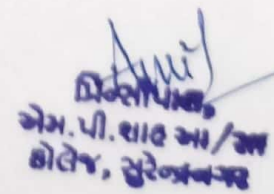 પ્રિન્સીપાલ,
એમ.પી.શાહ આ/સા
કોલેજ, સુરેન્દ્રનગર